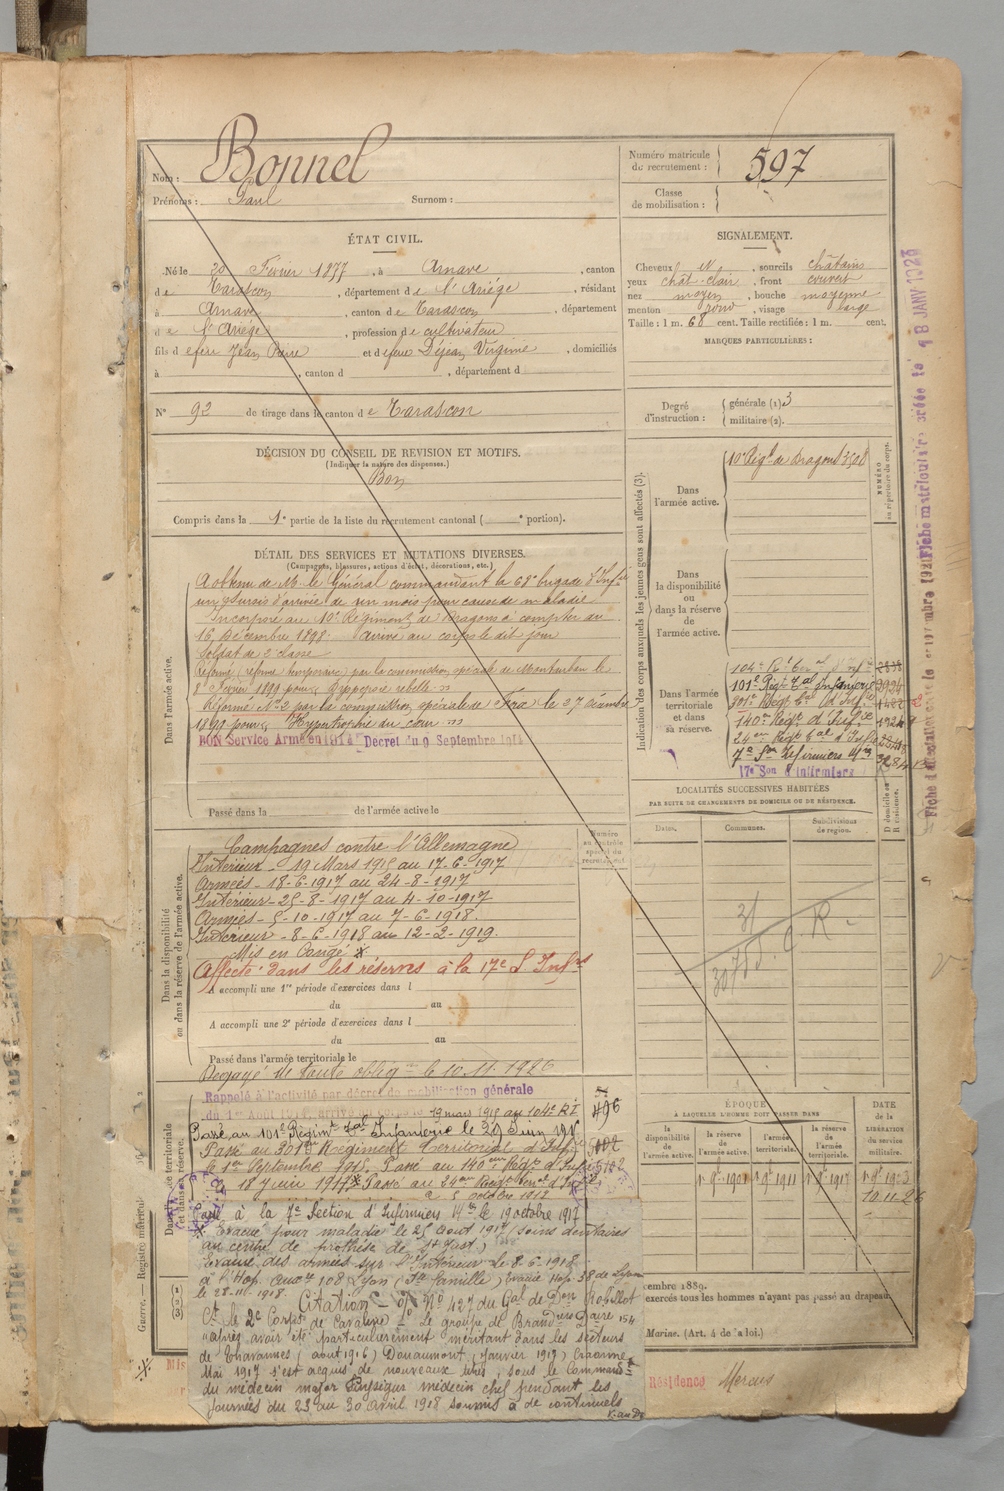 Nom : Bonnel
Prénoms : Paul Surnom :
Numéro matricule
de recrutement : 597
Classe
de mobilisation :
ÉTAT CIVIL.
Né le 20 Février 1877, à Arnave, canton
de Tarascon, département de l'Ariège, résidant
à Arnave, canton de Tarascon, département
de l'Ariège, profession de cultivateur
fils de feu Jean Pierre et de feue Déjean Virginie, domiciliés
à , canton d , département d
N° 92 de tirage dans le canton de Tarascon
SIGNALEMENT.
Cheveux N, sourcils châtains
yeux chât-clair, front couvert
nez moyen, bouche moyenne
menton rond, visage large
Taille : 1 m. 68 cent. Taille rectifiée : 1 m. cent.
MARQUES PARTICULIÈRES :
Degré
d'instruction :
générale (1) 3
militaire (2).
DÉCISION DU CONSEIL DE REVISION ET MOTIFS.
(Indiquer la nature des dispenses.)
Bon
Compris dans la 1e partie de la liste du recrutement cantonal ( e portion).
DÉTAIL DES SERVICES ET MUTATIONS DIVERSES.
(Campagnes, blessures, actions d'éclat, décorations, etc.)
Dans l'armée active.
A obtenu de M. le Général commandant la 68e brigade d'Infie
un sursis d'arrivée de un mois pour cause de maladie
Incorporé au 10e Régiment de Dragons à compter du
16 Décembre 1898. Arrivé au corps le dit jour
Soldat de 2e classe
Réformé (réforme temporaire) par la commission spéciale de Montauban le
8 Février 1899 pour
Réformé No 2 par la commission spéciale de Foix le 27 décembre
1899 pour Hypertrophie du cœur
BON Service Armé en 1914 Decret du 9 Septembre 1914
Passé dans la de l'armée active le
Dans la disponibilité
ou dans la réserve de l'armée active.
Campagnes contre l'Allemagne
Intérieur - 19 Mars 1915 au 17-6-1917
Armées - 18-6-1917 au 24-8-1917
Intérieur - 25-8-1917 au 4-10-1917
Armées - 5-10-1917 au 7-6-1918.
Intérieur - 8-6-1918 au 12-2-1919.
Mis en Congé
Affecté dans les réserves à la 17e S Infrs
A accompli une 1re période d'exercices dans l
du au
A accompli une 2e période d'exercices dans l
du au
Passé dans l'armée territoriale le
Dégagé de toute obligon le 10.11.1926
Numéro
au contrôle
spécial du
recrutement
Indication des corps auxquels les jeunes gens sont affectés (3).
NUMÉRO
au répertoire du corps.
Dans
l'armée active.
10e Régt de Dragons 3508
Dans
la disponibilité
ou
dans la réserve
de
l'armée active.
Dans l'armée
territoriale
et dans
sa réserve.
101e Régt Tal Infanterie
301e Régt Tal d'Infie
140e Régt d'Infie
24eme Régt Tal d'Infie
7e Son Infirmiers
17e Son d'Infirmiers
LOCALITÉS SUCCESSIVES HABITÉES
PAR SUITE DE CHANGEMENTS DE DOMICILE OU DE RÉSIDENCE.
Dates. Communes. Subdivisions
de région. D domicile ou
R résidence.
ÉPOQUE
À LAQUELLE L'HOMME DOIT PASSER DANS
la
disponibilité
de
l'armée active.
la réserve
de
l'armée active.
l'armée
territoriale.
la réserve
de
l'armée
territoriale.
DATE
de la
LIBÉRATION
du service
militaire.
Rappelé à l'activité par décret de mobilisation générale
du 1er Août 1914, arrivé au corps le 19 mars 1915 au 104e RI
Passé au 101e Régimt Tal Infanterie le 29 Juin 191
Passé au 301e Régiment Territorial d'Infie
le 1er Septembre 191 . Passé au 140eme Régt d'Infie
le 18 juin 1917 Passé au 24eme Régt
le 5 octobre 1917
Passé à la 7e Section d'Infirmiers Mres le 19 octobre 1917
Evacué pour maladie le 25 août 1917 soins dentaires
au centre de prothèse de St Just
Evacué des armées sur l'Intérieur le 8.6.1918
à l'Hop. 108 Lyon (Ste famille) Evacué Hop. 38 de Lyon
le 28-11-1918.
Citation - No 427 du Gal de Don Robillot
Ct le 2e Corps de Cavalerie - Le groupe de Brancrs Dre 154
"après avoir été particulièrement méritant dans les secteurs
de Thavannes (août 1916) Douaumont (Janvier 1917) Craonne
Mai 1917 s'est acquis de nouveaux titres, sous le Commandt
du médecin major médecin chef pendant les
Journées du 23 au 30 avril 1918 soumis à de continuels
cembre 1889.
exercés tous les hommes n'ayant pas passé au drapeau
Marine. (Art. 4 de la loi.)
Résidence Mercus
Guerre. — Registre matricul